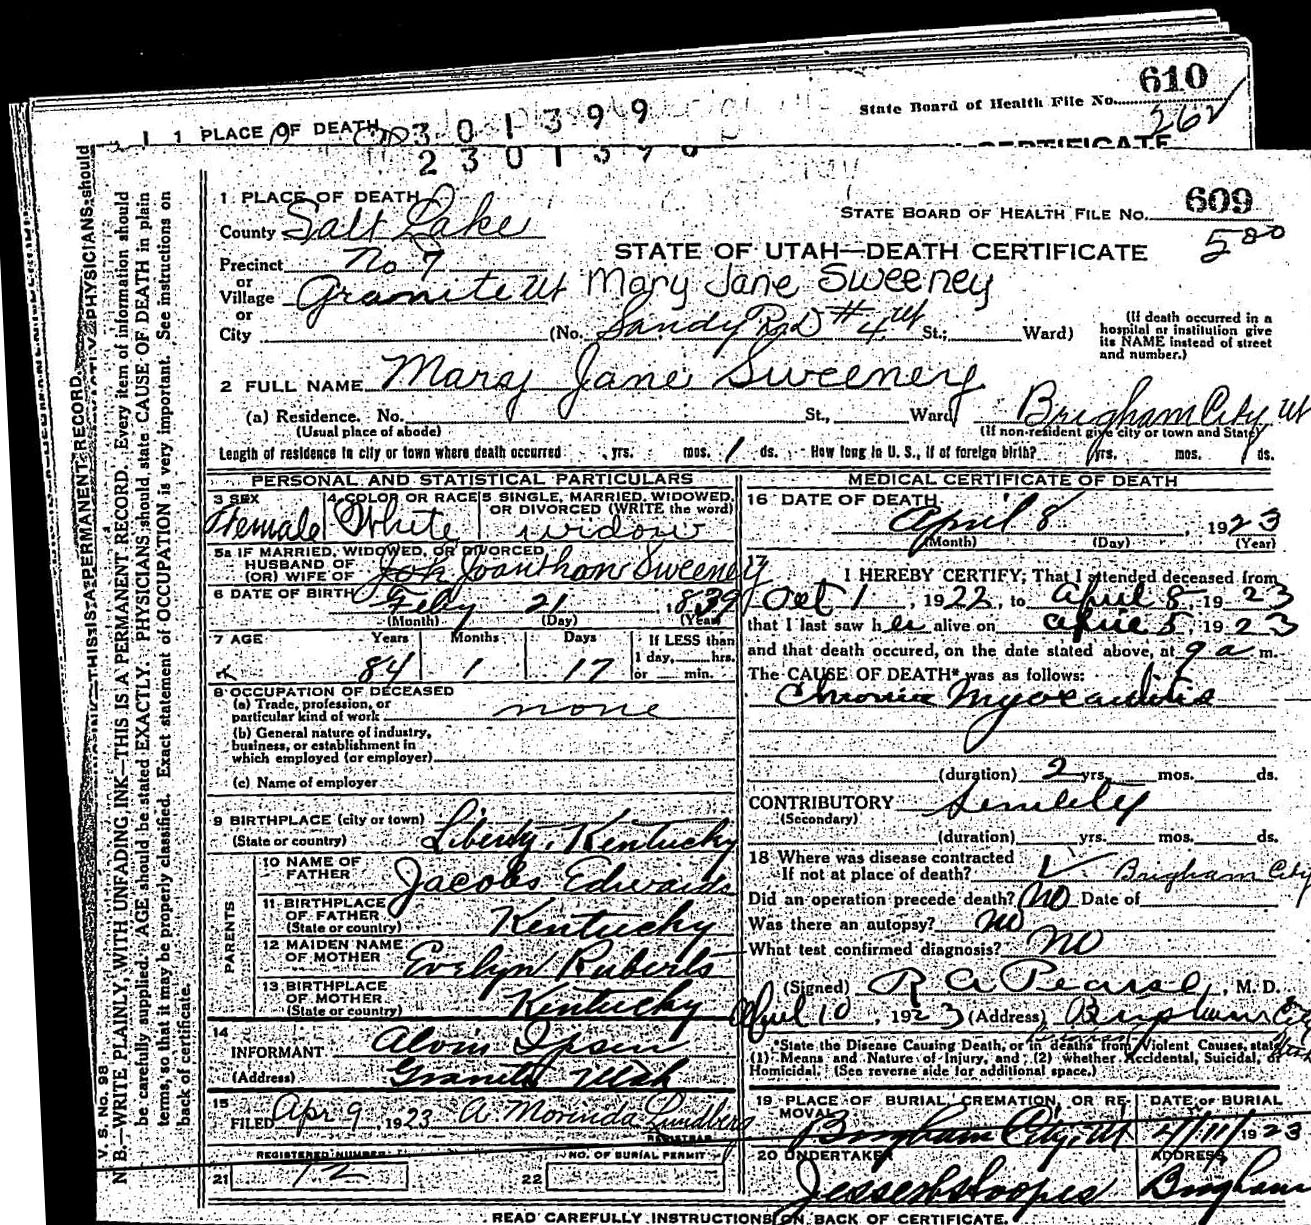 610
State Board of Health File No.
262
1 1 PLACE OF DEATH 301399
CERTIFICATE
1 PLACE OF DEATH
609
STATE BOARD OF HEALTH FILE NO.
500
County Salt Lake
STATE OF UTAH—DEATH CERTIFICATE
Precinct No 7
or
Village Granite Ut Mary Jane Sweeney
or
City (No. Sandy R.D #4 Ut St.; Ward)
(If death occurred in a
hospital or institution give
its NAME instead of street
and number.)
2 FULL NAME Mary Jane Sweeney
(a) Residence. No. St., Ward Brigham City Ut
(Usual place of abode) (If non-resident give city or town and State)
Length of residence in city or town where death occurred yrs. mos. 1 ds. How long in U. S., if of foreign birth? yrs. mos. ds.
PERSONAL AND STATISTICAL PARTICULARS
3 SEX 4 COLOR OR RACE 5 SINGLE, MARRIED, WIDOWED,
OR DIVORCED (WRITE the word)
Female White widow
5a IF MARRIED, WIDOWED, OR DIVORCED
HUSBAND OF
(OR) WIFE OF Joanthan Sweeney
6 DATE OF BIRTH Feby 21 1839
(Month) (Day) (Year)
7 AGE Years Months Days If LESS than
1 day, hrs.
84 1 17 or min.
8 OCCUPATION OF DECEASED
(a) Trade, profession, or
particular kind of work none
(b) General nature of industry,
business, or establishment in
which employed (or employer)
(c) Name of employer
9 BIRTHPLACE (city or town)
(State or country) Liberty, Kentucky
PARENTS
10 NAME OF
FATHER Jacobs Edwards
11 BIRTHPLACE
OF FATHER
(State or country) Kentucky
12 MAIDEN NAME
OF MOTHER Evelyn Ruberts
13 BIRTHPLACE
OF MOTHER
(State or country) Kentucky
14
INFORMANT Alvin Ipsen
(Address) Granite Utah
15
FILED Apr 9, 1923 A. Morinda Lundberg
REGISTRAR
REGISTERED NUMBER NO. OF BURIAL PERMIT
21 12 22
MEDICAL CERTIFICATE OF DEATH
16 DATE OF DEATH
April 8, 1923
(Month) (Day) (Year)
17 I HEREBY CERTIFY, That I attended deceased from
Oct 1, 1922, to April 8, 1923
that I last saw her alive on April 5, 1923
and that death occured, on the date stated above, at 9 a m.
The CAUSE OF DEATH* was as follows:
Chronic Myocarditis
(duration) 2 yrs. mos. ds.
CONTRIBUTORY Senility
(Secondary)
(duration) yrs. mos. ds.
18 Where was disease contracted
If not at place of death? Brigham City
Did an operation precede death? no Date of
Was there an autopsy? no
What test confirmed diagnosis? no
(Signed) R A Pearse, M. D.
April 10, 1923 (Address) Brigham City
*State the Disease Causing Death, or in deaths from Violent Causes, state
(1) Means and Nature of Injury, and (2) whether Accidental, Suicidal, or
Homicidal. (See reverse side for additional space.)
19 PLACE OF BURIAL, CREMATION, OR RE-
MOVAL
DATE OF BURIAL
Brigham City, Ut 4/11/1923
20 UNDERTAKER ADDRESS
Brigham
READ CAREFULLY INSTRUCTIONS ON BACK OF CERTIFICATE.
V. S. No. 98
N. B.—WRITE PLAINLY, WITH UNFADING INK—THIS IS A PERMANENT RECORD. Every item of information should
be carefully supplied. AGE should be stated EXACTLY. PHYSICIANS should state CAUSE OF DEATH in plain
terms, so that it may be properly classified. Exact statement of OCCUPATION is very important. See instructions on
back of certificate.